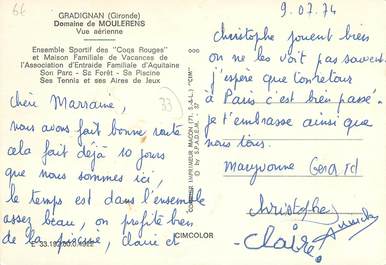 66
GRADIGNAN (Gironde)
Domaine de MOULERENS
Vue aérienne
Ensemble Sportif des "Coqs Rouges"
et Maison Familiale de Vacances de
l'Association d'Entraide Familiale d'Aquitaine
Son Parc - Sa Forêt - Sa Piscine
Ses Tennis et ses Aires de Jeux
33
chère Marraine,
nous avons fait bonne route
cela fait déjà 10 jours
que nous sommes ici,
le temps est dans l'ensemble
assez beau, on profite bien
de la piscine, claire et
CIMCOLOR
COMBIER IMPRIMEUR MACON (71. S.-&-L.) "CIM"
© by S.P.A.D.E.M.
9.07.74
christophe jouent bien
on ne les voit pas souvent
j'espère que ton retour
à Paris c'est bien passé.
je t'embrasse ainsi que
nous tous.
Maryvonne Gerard
christophe
Claire Annick